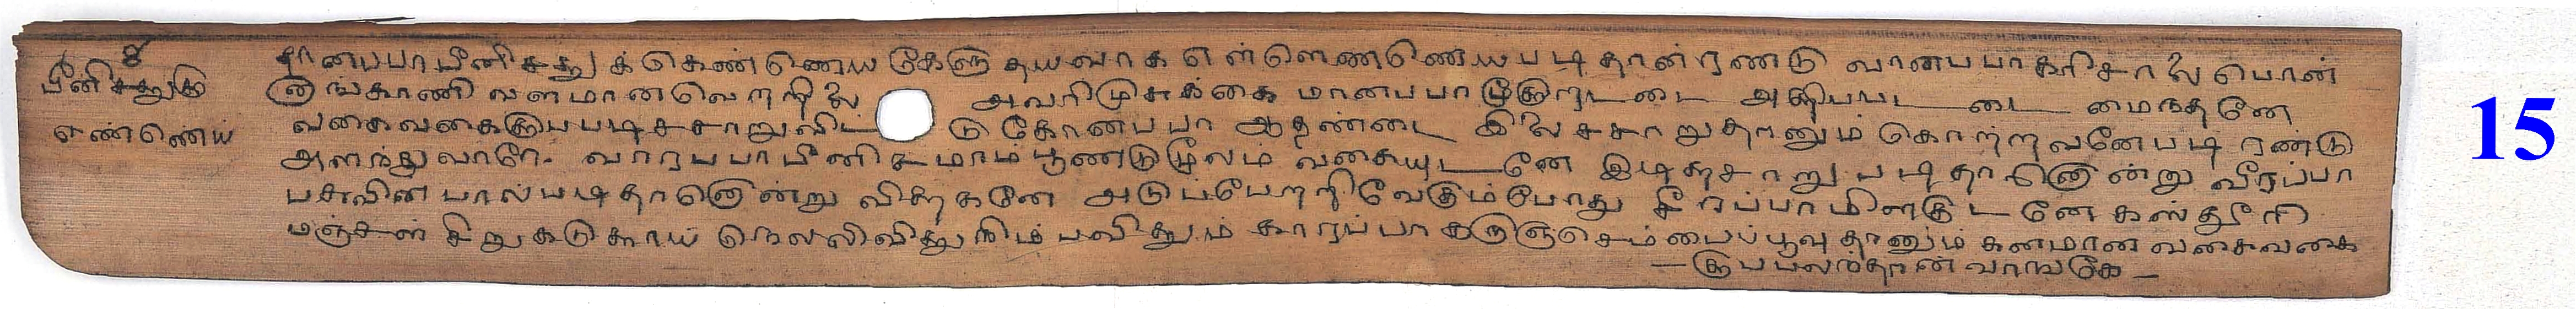 ௪
பீனிசத்துக்கு
எண்ணெய்
தானப்பா பீனிசத்துக் கெண்ணெய கேளு தயவாக எள்ளெணணெயபடி தான் ரணடு வானபபா கரிசாலை பொன்
னுங்காணி வளமானவெறறிலை அவரிமுசுக்கை மானபபா மைநதனே
வகைவகைககுபபடிச்சாறுவிட்டு கோணபபா ஆதண்டை இலைச்சாறுதானும் கொற்றவனேபடி ரண்டு
அளந்துவாரே வாரபபா பீனிசமாம பூணடுமூலம் வகையுடனே இடிசுசாறு படிதானொன்று வீரப்பா
பசுவின பால்படிதானொன்று விசுகனே அடுப்பேறறி வேகும்போது சீரப்பா மிளகுடனே கஸ்தூரி
மஞ்சள் சிறுகடுகாய் நெல்லிவித்து காரப்பா கருஞ்செம்பைப்பூவு தானும் கனமான வகைவகை
கூபபலந்தான் வாஙகே
15